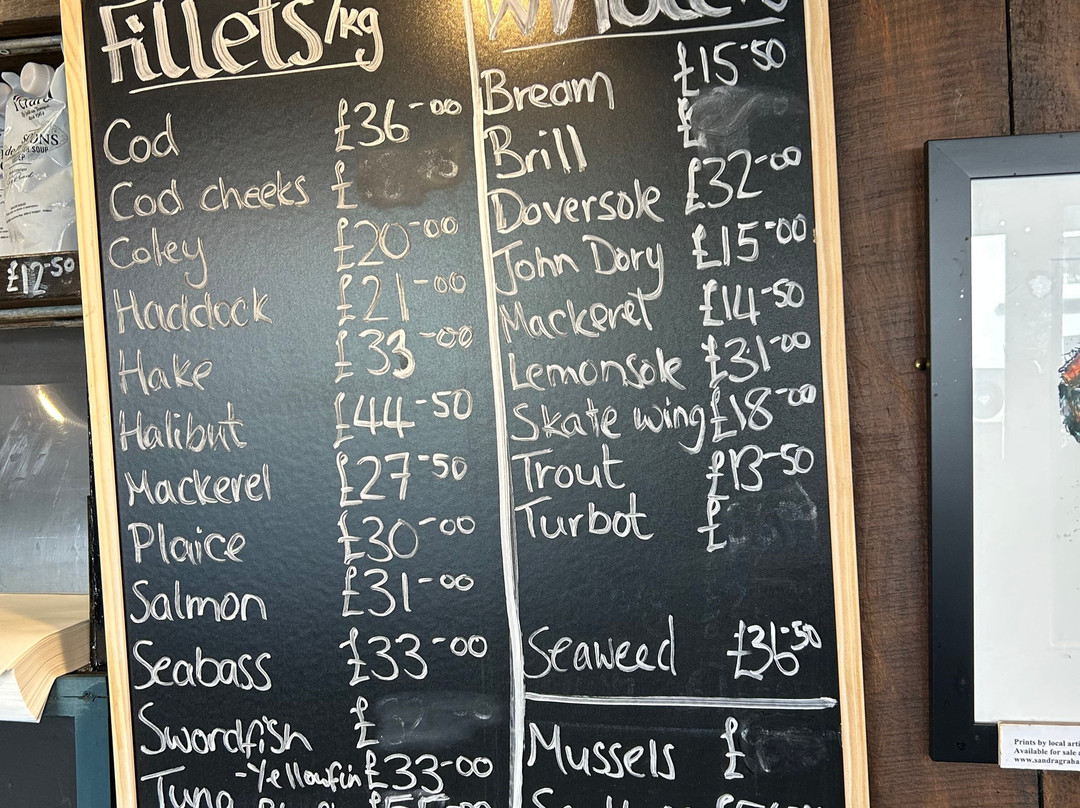 Fillets/kg
Cod £36-00
Cod cheeks £
Coley £20-00
Haddock £21-00
Hake £33-00
Halibut £44-50
Mackerel £27-50
Plaice £30-00
Salmon £31-00
Seabass £33-00
Swordfish £
Tuna -Yellowfin £33-00
Bream £15-50
Brill £
Doversole £32-00
John Dory £15-00
Mackerel £14-50
Lemonsole £31-00
Skate wing £18-00
Trout £13-50
Turbot £
Seaweed £36-50
Mussels £
£12-50
Prints by local arti
Available for sale a
www.sandragraha